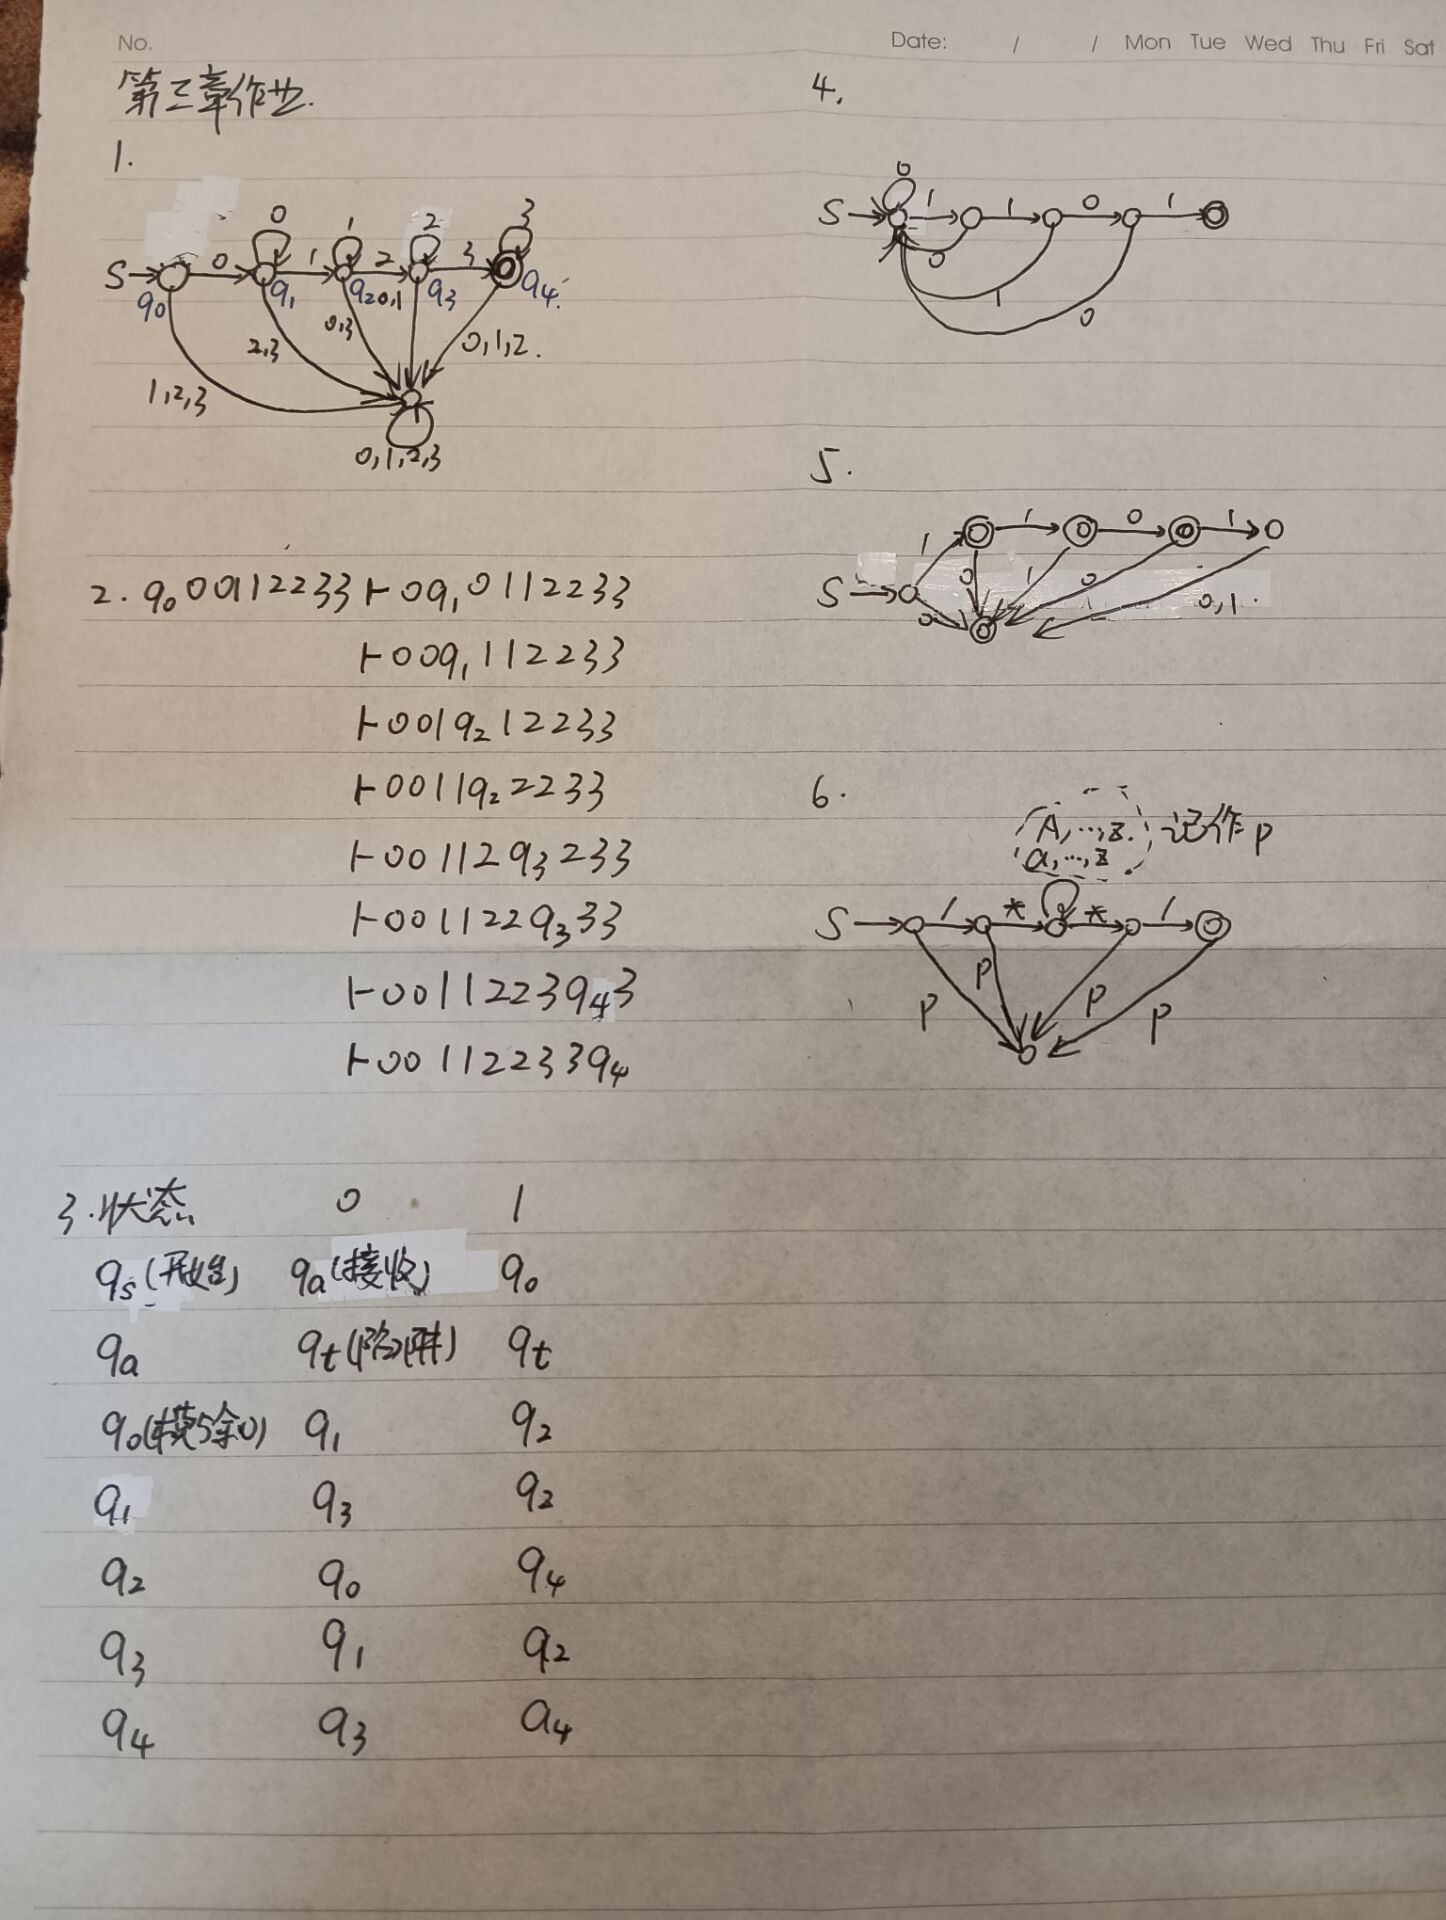 No.
Date: / / Mon Tue Wed Thu Fri Sat
第三章作业.
1.
0 1 2 3
S 0 1 2 3
q0 q1 q2 0,1 q3 q4.
1,2,3 2,3 0,3 0,1,2.
0,1,2,3
2. q0 00112233 ⊢ 0q1 0112233
⊢ 00q1 112233
⊢ 001q2 12233
⊢ 0011q2 2233
⊢ 00112q3 233
⊢ 001122q3 33
⊢ 0011223q4 3
⊢ 00112233q4
3. 状态 0 1
qs(开始) qa(接收) q0
qa qt(陷阱) qt
q0(模5余0) q1 q2
q1 q3 q2
q2 q0 q4
q3 q1 q2
q4 q3 q4
4.
0
S 1 1 0 1
0
1
0
5.
1 1 0 1
S 0 1 0 0,1.
0
6.
A,…,Z. 记作P
a,…,z
S / * * /
P P P P